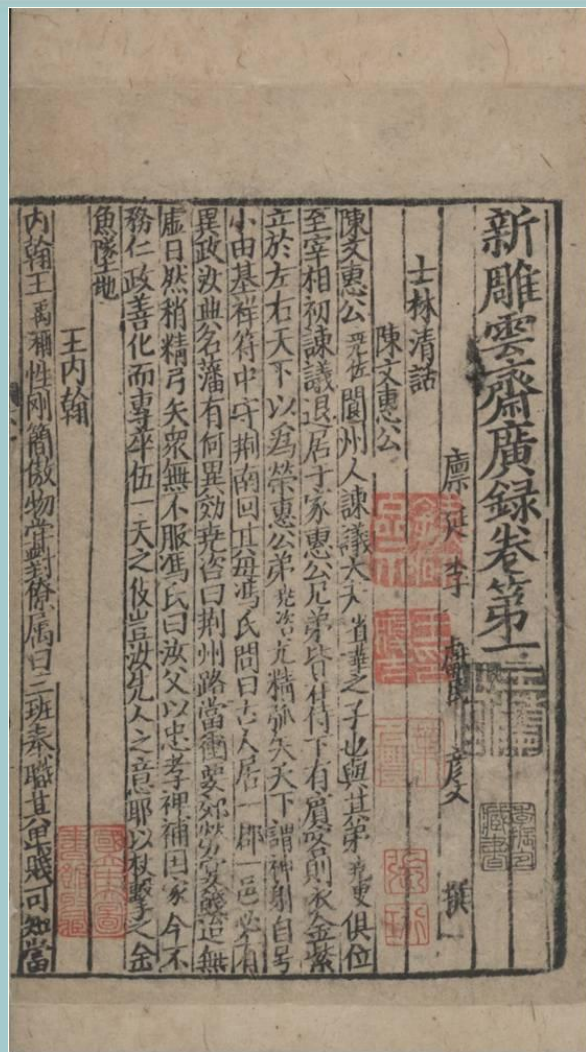 新雕雲齋廣録卷第一
廩延李 獻民 彦文 撰
士林清話
陳文惠公
陳文惠公堯佐閬州人諫議大夫省華之子也與其弟堯叟俱位
至宰相初諫議退居于家惠公兄弟皆侍侍下有賔客則衣金紫
立於左右天下以爲榮惠公弟堯咨尤精弧矢天下謂神射自号
小由基祥符中守荆南回其母馮氏問曰古人居一郡一邑必有
異政汝典名藩有何異効堯咨曰荆州路當衝要郊勞宴餞迨無
虛日然稍精弓矢衆無不服馮氏曰汝父以忠孝裨補国家今不
務仁政善化而專卒伍一夫之伎豈汝先人之意耶以杖擊之金
魚墜地
王内翰
内翰王禹偁性剛簡傲物嘗對僚属曰三班奉職其卑賤可知當